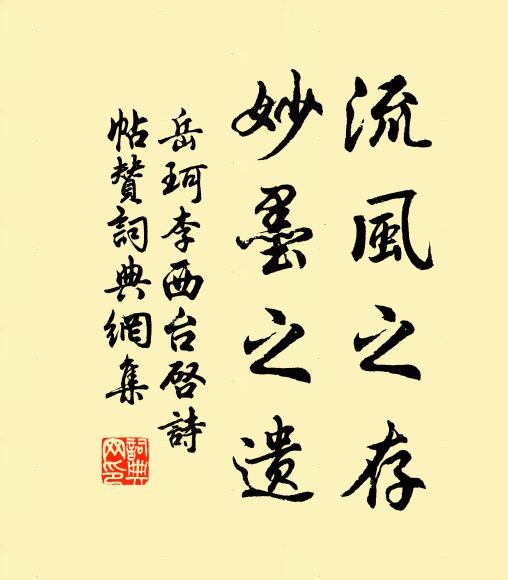 流風之存
妙墨之遗
岳珂李西台啓詩
帖贊詞典網集
詞典
网印